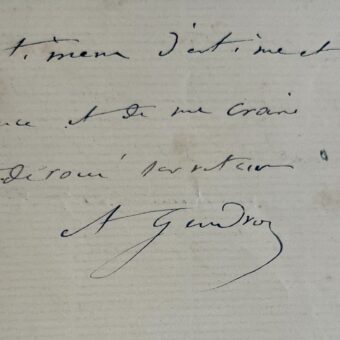 timens d'estime et
et de me croire
dévoué serviteur
A Gendron